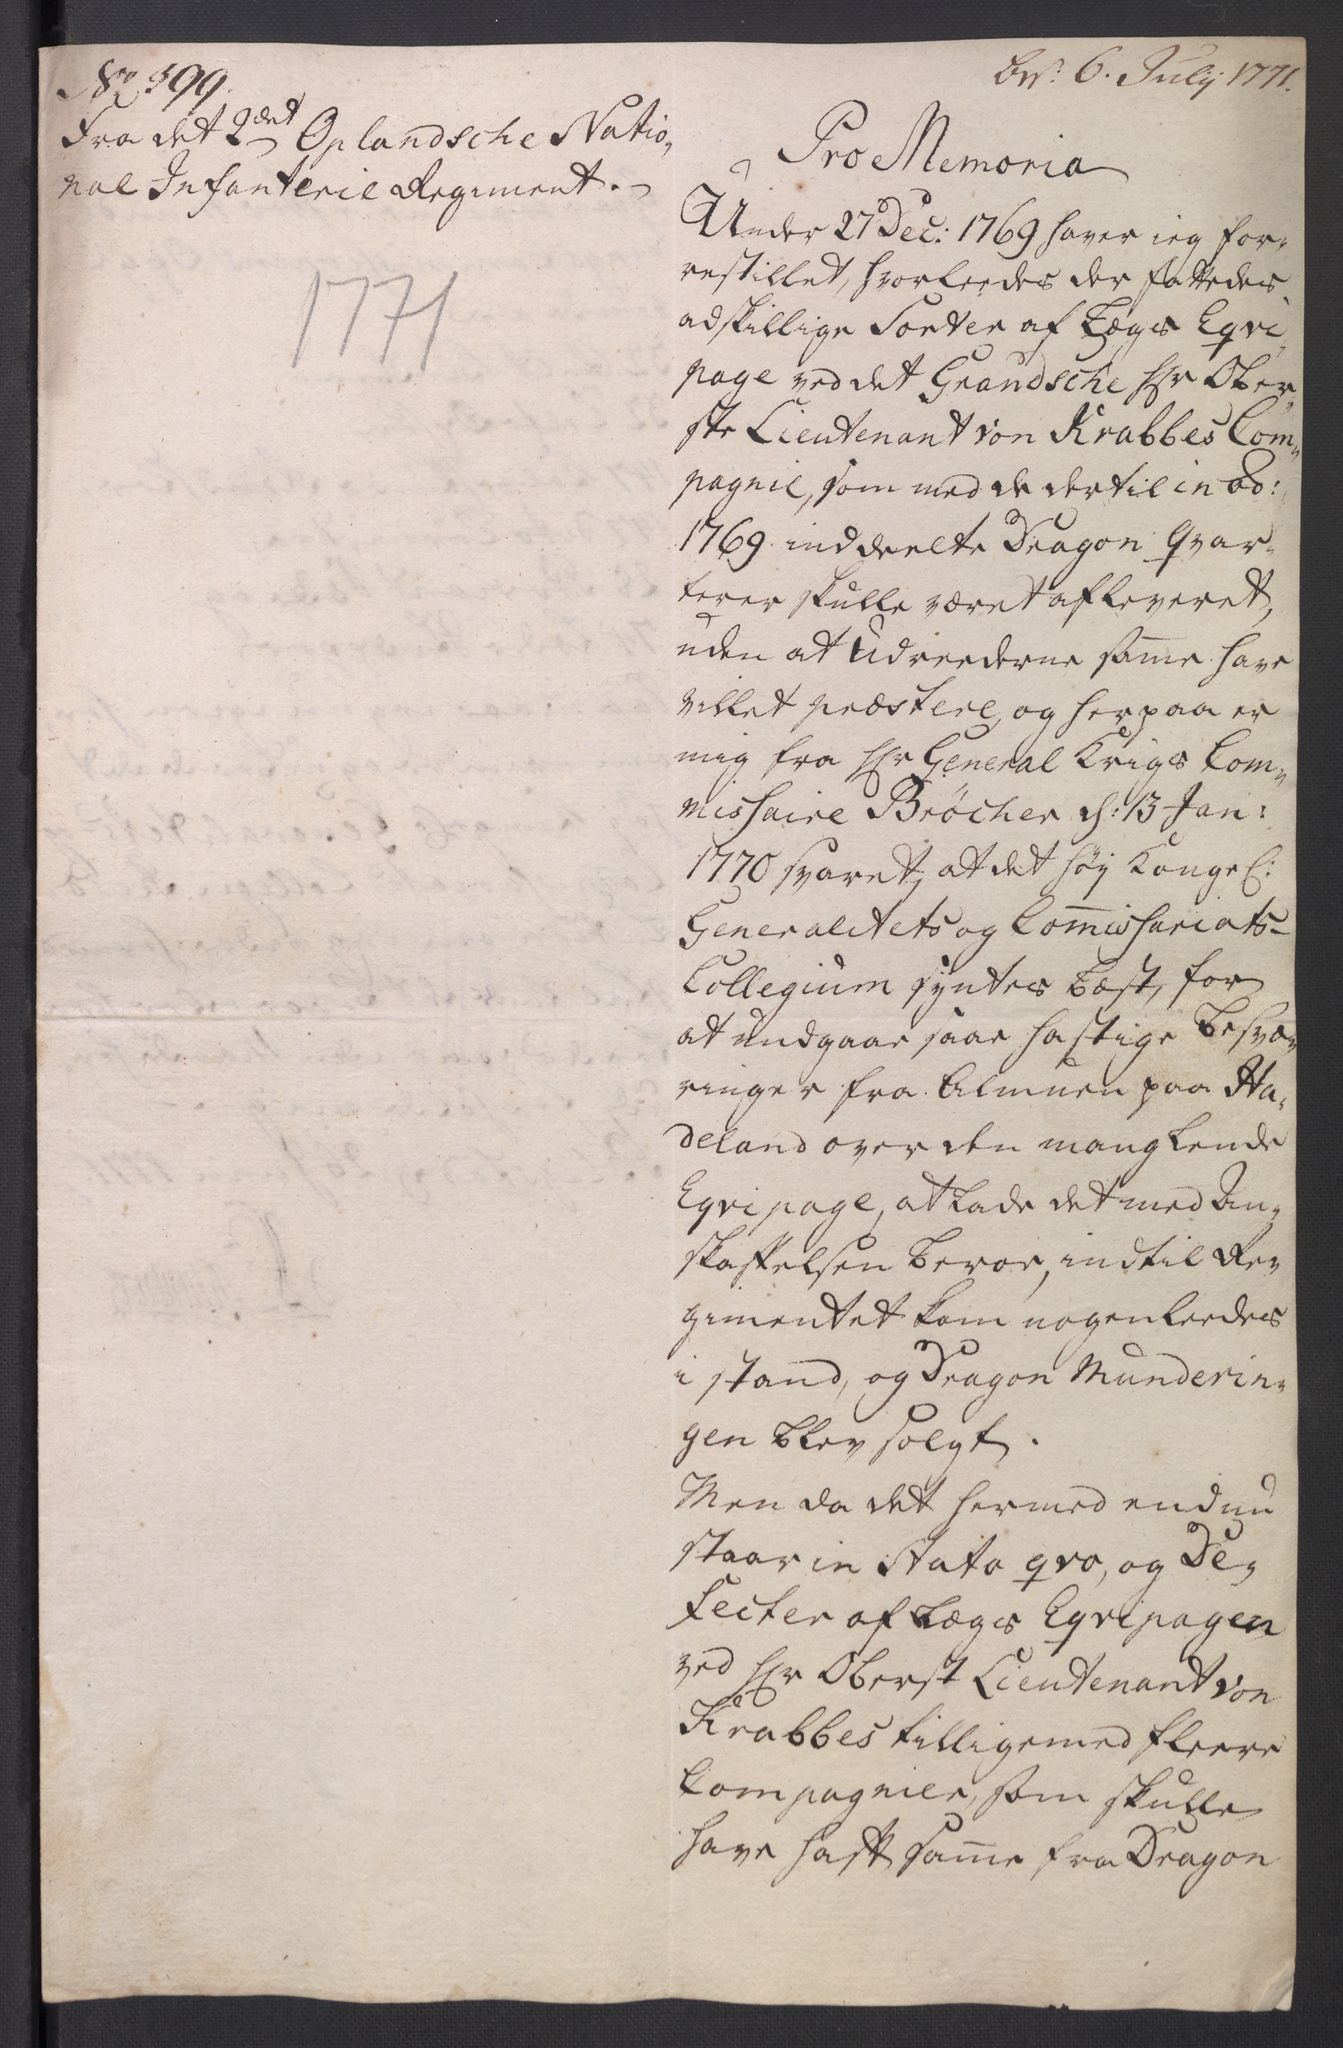 No 399.
Fra det 2det Oplandsche Natio„
nal Infanterie Regiment.
1771
bes: 6. Julij 1771.
Pro Memoria
Under 27 Dec: 1769 haver jeg for„
restillet, hvorleedes der fattedes
adskillige Sorter af Lægs Eqvi„
page ved det Grandsche Hr Ober„
ste Lieutenant von Krabbes Com„
pagnie, som med de dertil in 8b:
1769 inddeelte Dragon Qvar„
terer skulle været afleveret,
uden at Udreederne samme have
villet præstere, og herpaa er
mig fra Hr General Krigs Com„
missaire Bröcher d: 13 Jan:
1770 svaret, at det høy Kongel:
Generalitets og Commissariats-
Collegium syntes best, for
at undgaae saae hastige besvæ„
ringer fra Almuen paa Ha„
deland over den manglende
Eqvipage, at lade det med An„
skaffelsen beroe, indtil Re„
gimentet kom nogenleedes
i stand, og Dragon Munderin„
gen blev solgt.
Men da det hermed endnu
staar in Stato qvo, og De„
fecter af Lægs Eqvipagen
ved Hr Oberst Lieutenant von
Krabbes tilligemed fleere
Compagnier, som skulle
have haft samme fra Dragon